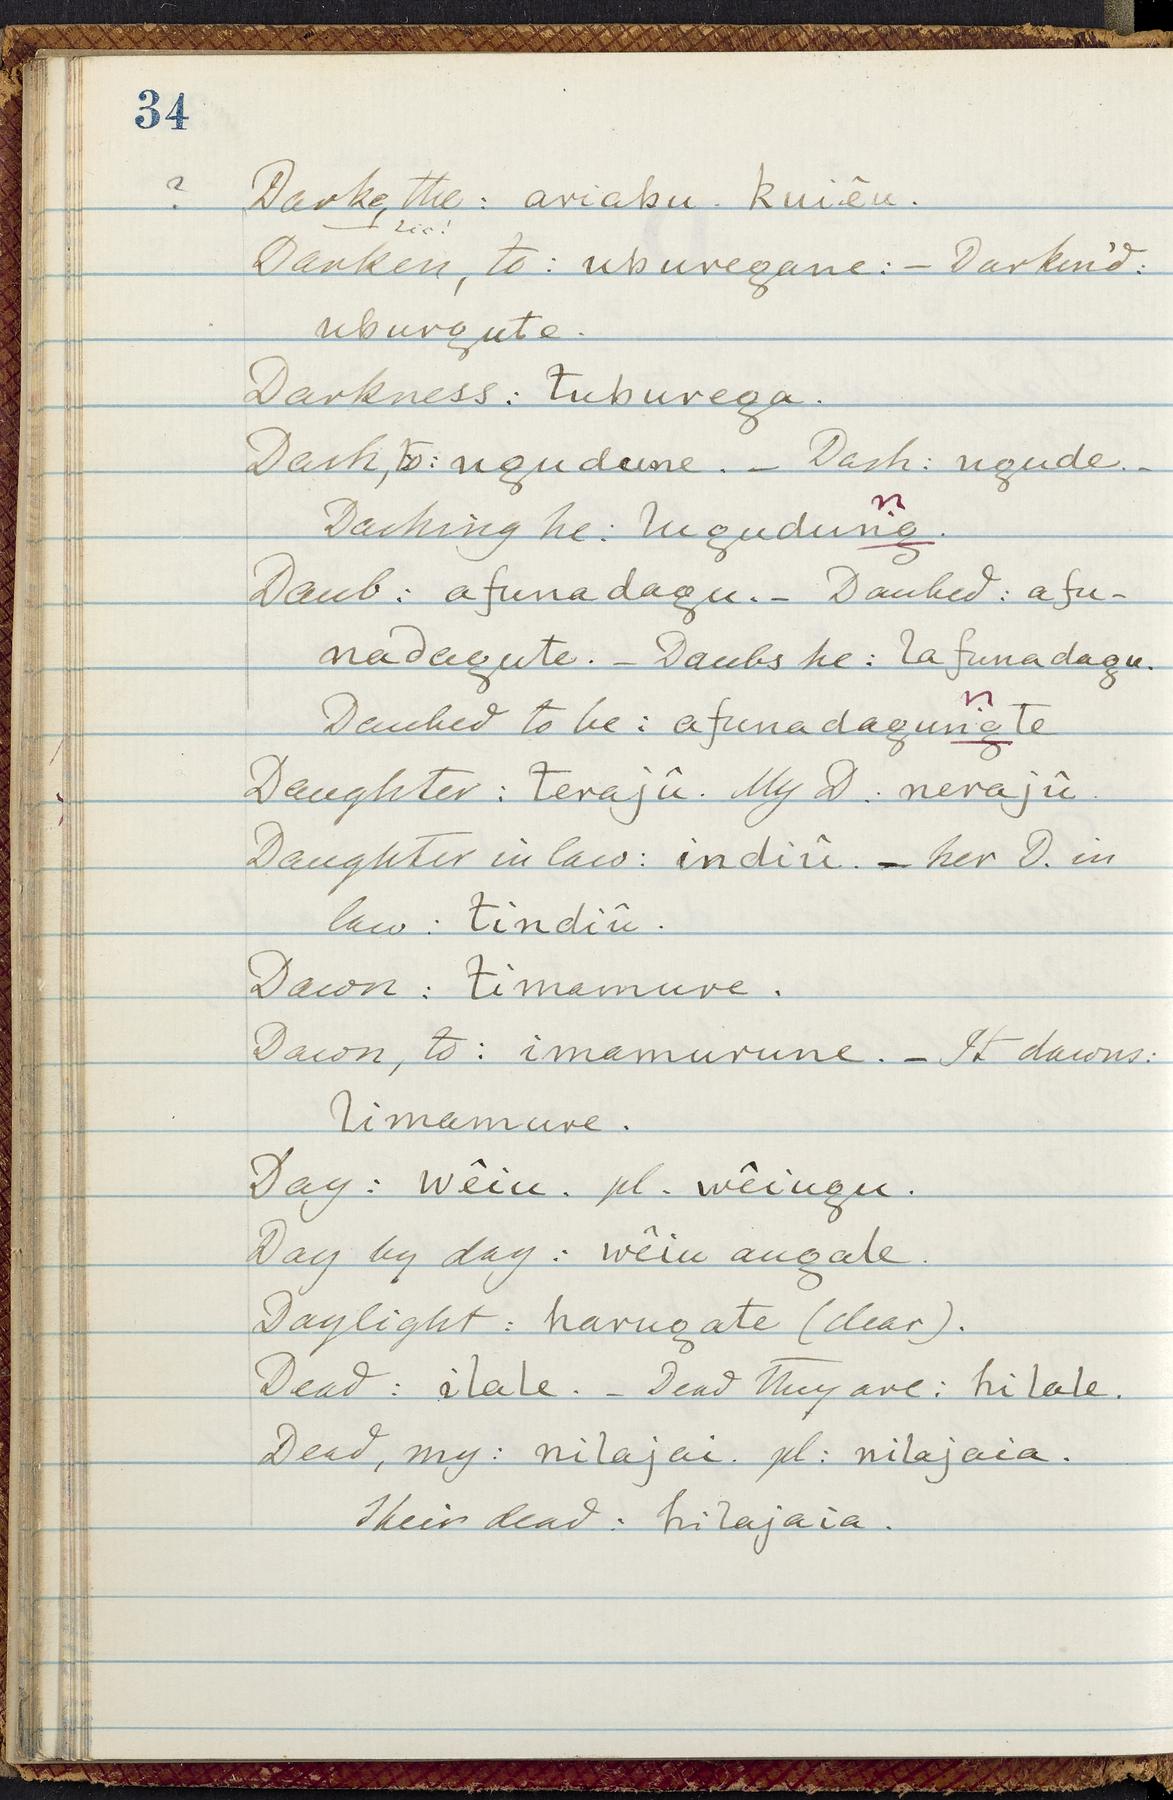 34
? Darke, the: ariabu. kuiêu.
sic!
Darken, to: uburegane: – Darken'd:
uburgute.
Darkness: tuburega.
Dash, to: ngudune. – Dash: ngude. –
n
Dashing he: lugudung.
Daub: afunadagu. – Daubed: afu-
nadagute. – Daubs he: lafunadagu.
n
Daubed to be: afunadagungte
Daughter: terajû. My D.: nerajû.
Daughter in law: indiû. – her D. in
law: tindiû.
Dawn: timamure.
Dawn, to: imamurune. – It dawns:
limamure.
Day: wêiu. pl. wêiugu.
Day by day: wêiu augale.
Daylight: harugate (clear).
Dead: ilale. – Dead they are: hilale.
Dead, my: nilajai. pl: nilajaia.
Their dead: hilajaia.